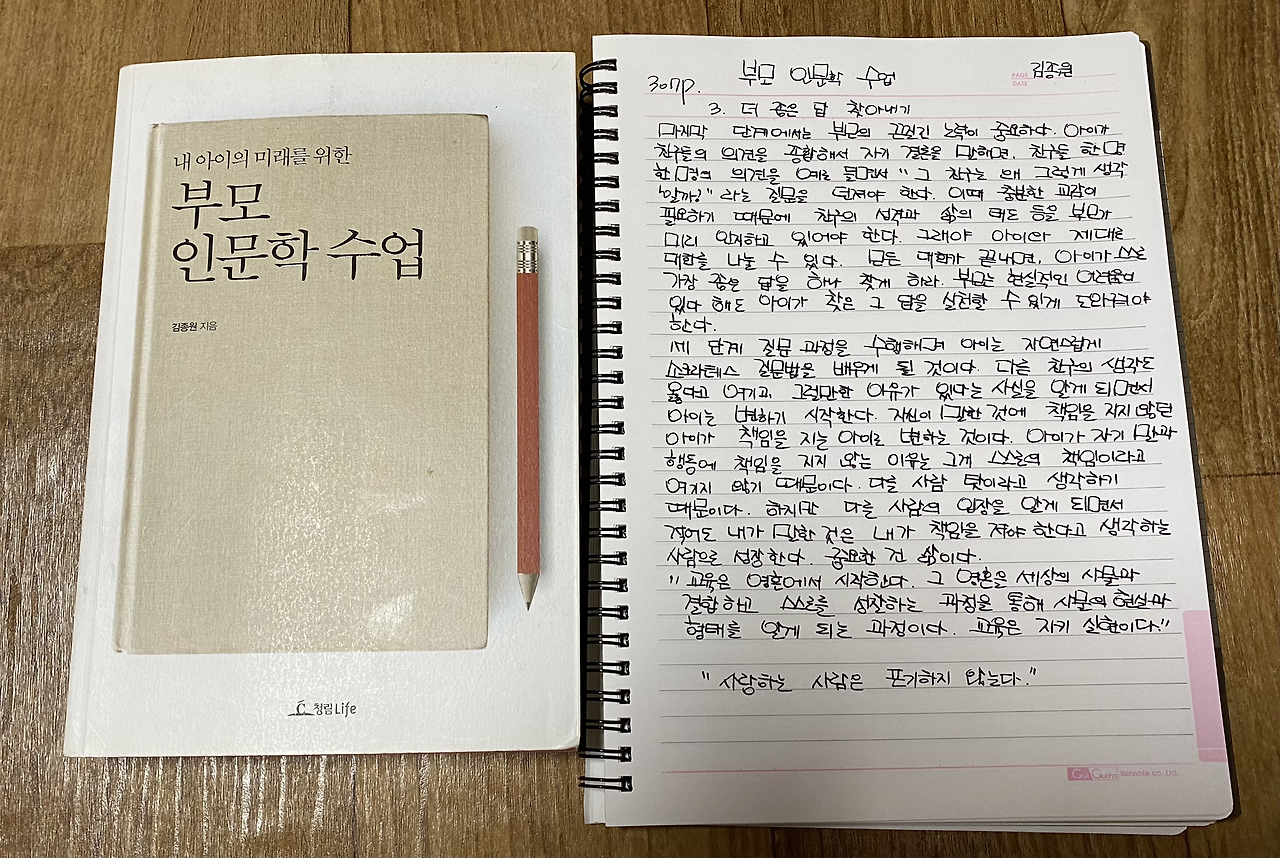 내 아이의 미래를 위한
부모
인문학 수업
김종원 지음
청림Life
부모 인문학 수업 김종원
PAGE
DATE
307p.
3. 더 좋은 답 찾아내기
마지막 단계에서는 부모의 끈질긴 노력이 중요하다. 아이가
친구들의 의견을 종합해서 자기 결론을 말하면, 친구들 한 명
한 명의 의견을 예로 들면서 "그 친구는 왜 그렇게 생각
할까?" 라는 질문을 던져야 한다. 이때 충분한 교감이
필요하기 때문에 친구의 성격과 삶의 태도 등을 부모가
미리 인지하고 있어야 한다. 그래야 아이와 제대로
대화를 나눌 수 있다. 모든 대화가 끝나면, 아이가 스스로
가장 좋은 답을 하나 찾게 하라. 부모는 현실적인 어려움이
있다 해도 아이가 찾은 그 답을 실천할 수 있게 도와줘야
한다.
세 단계 질문 과정을 수행하며 아이는 자연스럽게
소크라테스 질문법을 배우게 될 것이다. 다른 친구의 생각도
옳다고 여기고, 그럴만한 이유가 있다는 사실을 알게 되면서
아이는 변하기 시작한다. 자신이 말한 것에 책임을 지지 않던
아이가 책임을 지는 아이로 변하는 것이다. 아이가 자기 말과
행동에 책임을 지지 않는 이유는 그게 스스로의 책임이라고
여기지 않기 때문이다. 다른 사람 탓이라고 생각하기
때문이다. 하지만 다른 사람의 입장을 알게 되면서
적어도 내가 말한 것은 내가 책임을 져야 한다고 생각하는
사람으로 성장한다. 중요한 건 삶이다.
"교육은 영혼에서 시작한다. 그 영혼을 세상의 사물과
결합하고 스스로를 성장하는 과정을 통해 사물의 현실과
형태를 알게 되는 과정이다. 교육은 자기 실현이다."
"사랑하는 사람은 포기하지 않는다."